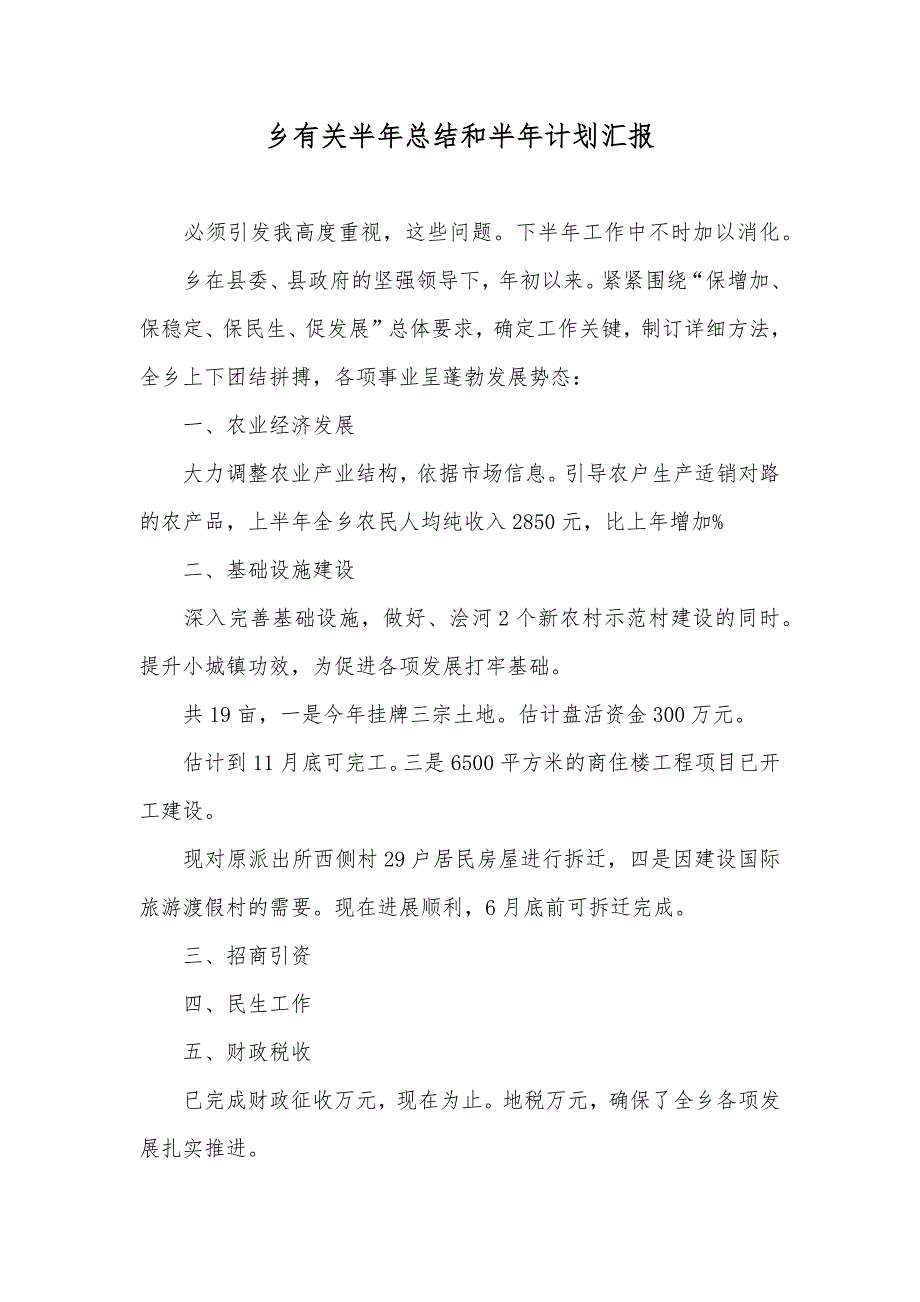 乡有关半年总结和半年计划汇报
必须引发我高度重视，这些问题。下半年工作中不时加以消化。
乡在县委、县政府的坚强领导下，年初以来。紧紧围绕“保增加、
保稳定、保民生、促发展”总体要求，确定工作关键，制订详细方法，
全乡上下团结拼搏，各项事业呈蓬勃发展势态：
一、农业经济发展
大力调整农业产业结构，依据市场信息。引导农户生产适销对路
的农产品，上半年全乡农民人均纯收入 2850 元，比上年增加%
二、基础设施建设
深入完善基础设施，做好、浍河 2 个新农村示范村建设的同时。
提升小城镇功效，为促进各项发展打牢基础。
共 19 亩，一是今年挂牌三宗土地。估计盘活资金 300 万元。
估计到 11 月底可完工。三是 6500 平方米的商住楼工程项目已开
工建设。
现对原派出所西侧村 29 户居民房屋进行拆迁，四是因建设国际
旅游渡假村的需要。现在进展顺利，6 月底前可拆迁完成。
三、招商引资
四、民生工作
五、财政税收
已完成财政征收万元，现在为止。地税万元，确保了全乡各项发
展扎实推进。